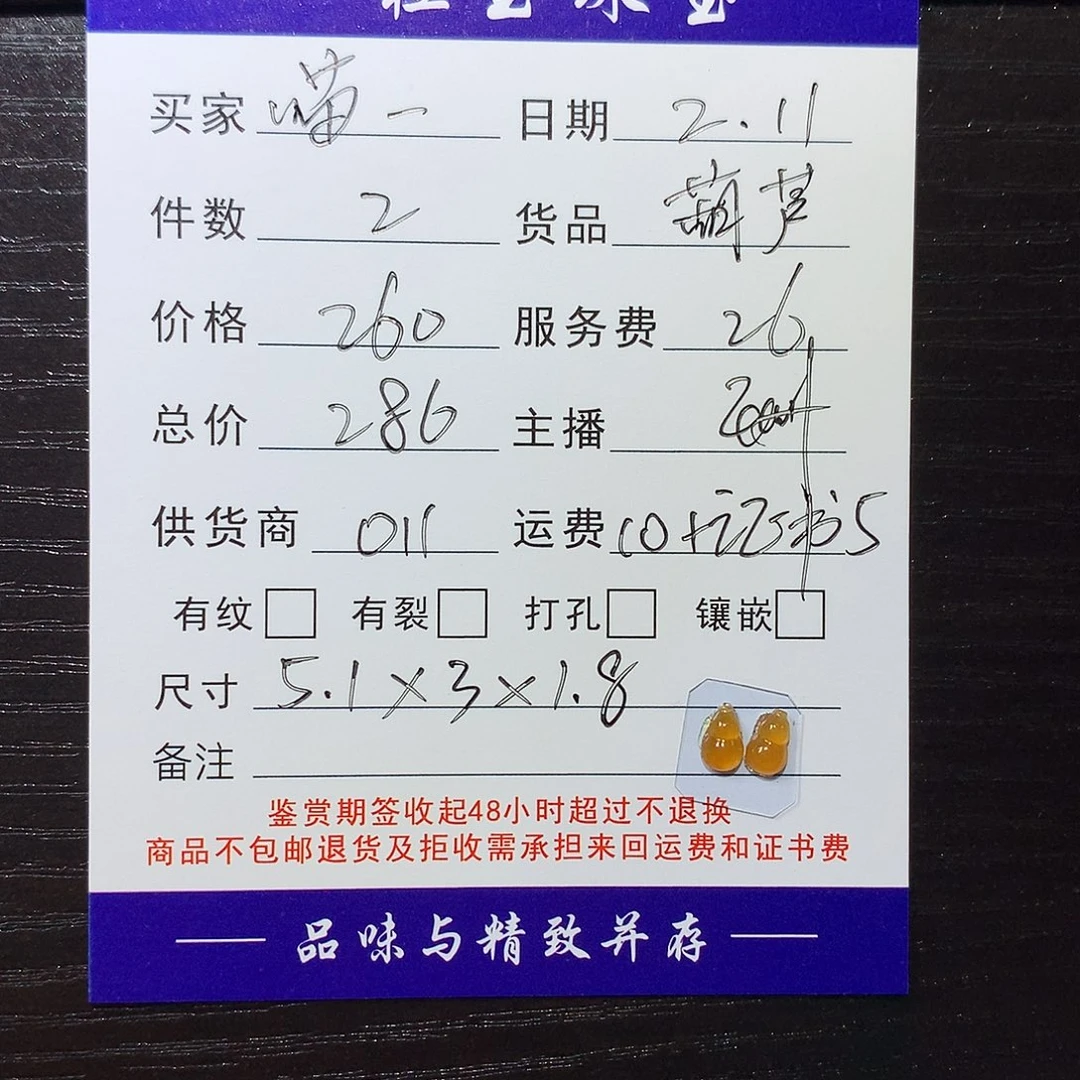 买家 喵一 日期 2.11
件数 2 货品 葫芦
价格 260 服务费 26
总价 286 主播
供货商 011 运费 10+证书5
有纹 有裂 打孔 镶嵌
尺寸 5.1×3×1.8
备注
鉴赏期签收起48小时超过不退换
商品不包邮退货及拒收需承担来回运费和证书费
品味与精致并存